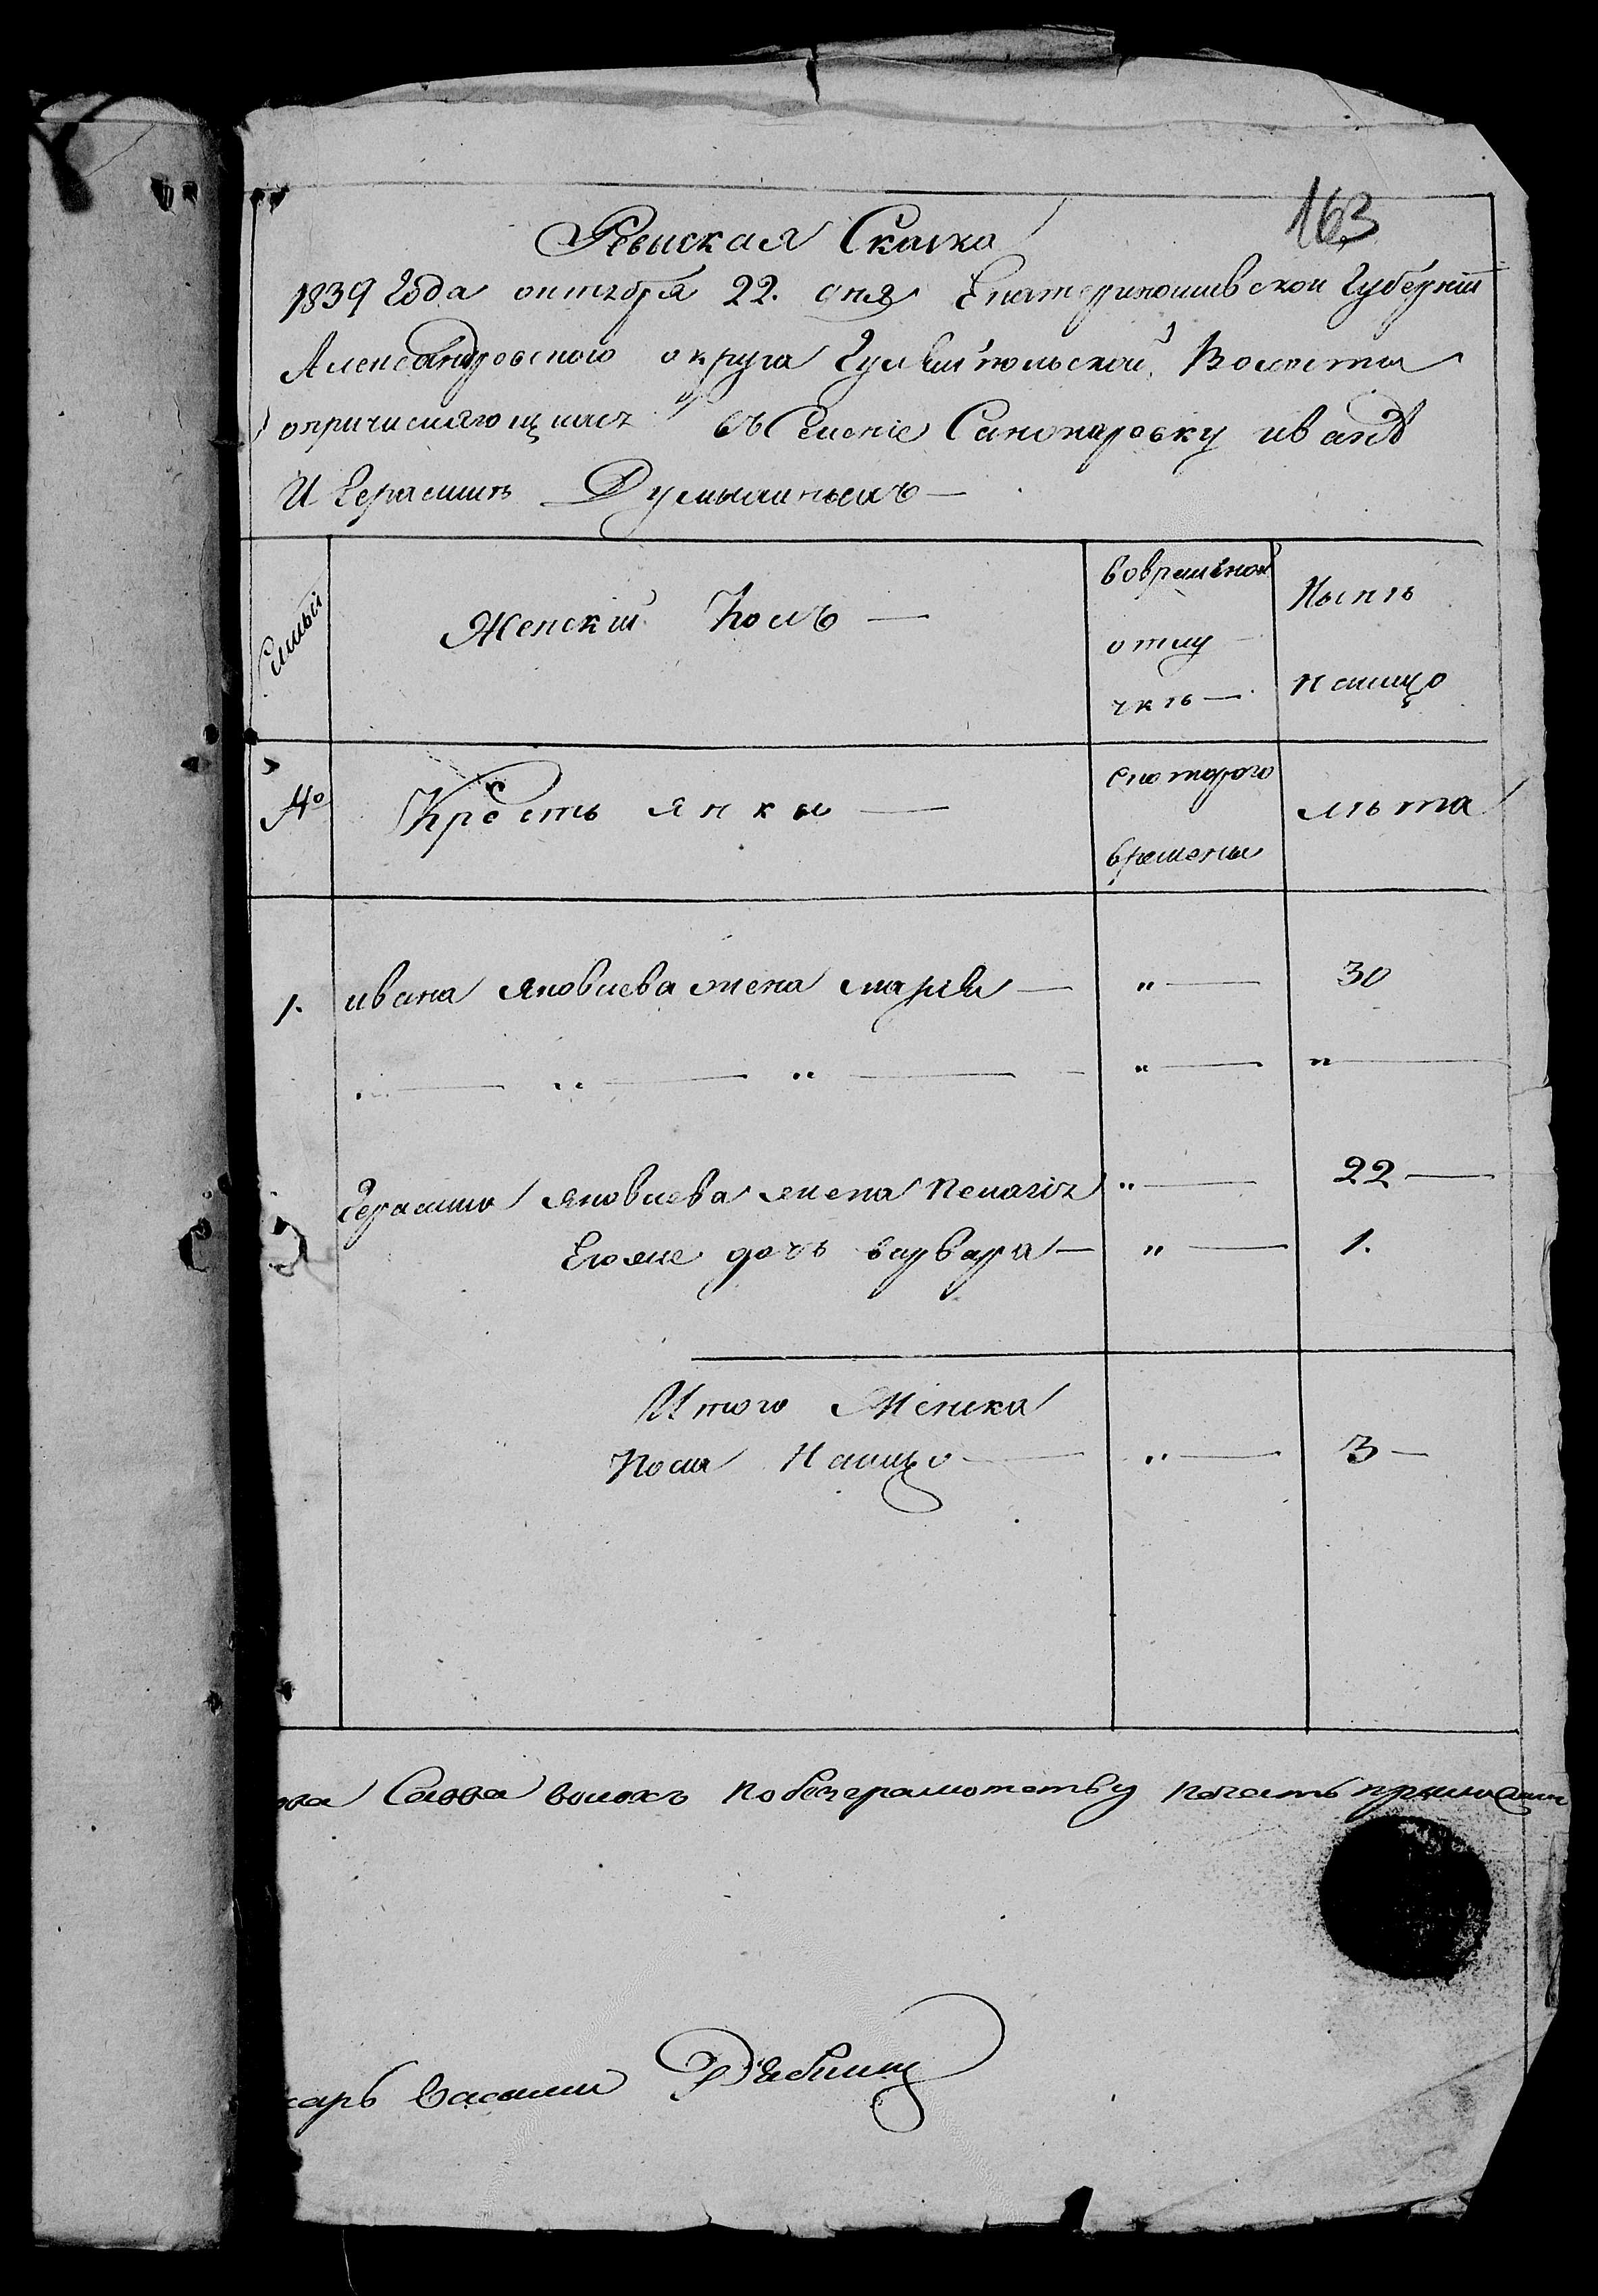 163
Ревиская Скаска
1839 Года октября 22. дня Екатеринославской Губерніи
Александровского округа Гуляйпольской Волости
опричисляющихся въ Селеніе Санжаровку иване
И Герасиме
Семьи
Женскій Полъ —
вовременой
отлу
чкѣ —
Нынѣ
налицо
№
Крестьянки —
скоторого
времены
лѣта
1. ивана Яковлева жена марія — " — 30
" — " — " — " — " —
Герасима Яковлева жена Пелагія " — 22 —
Егоже дочь варвара — " — 1.
Итого Женска
Пола Налицо — " — 3 —
Савва волохъ побезграмотству печать приложил
сарь Василий